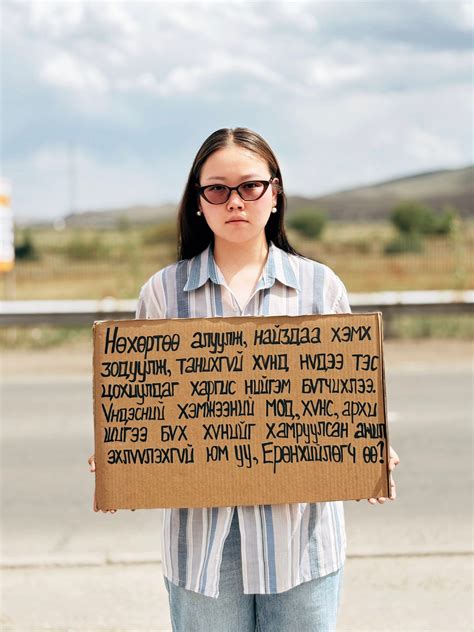 Нөхөртөө алуулж, найздаа хэмх
зодуулж, танихгүй хүнд нүдээ тэс
цохиулдаг харгис нийгэм бүгчихлээ.
Үндэсний хэмжээний мод, хүнс, архи
шигээ бүх хүнийг хамруулсан ажил
эхлүүлэхгүй юм уу, Ерөнхийлөгч өө?